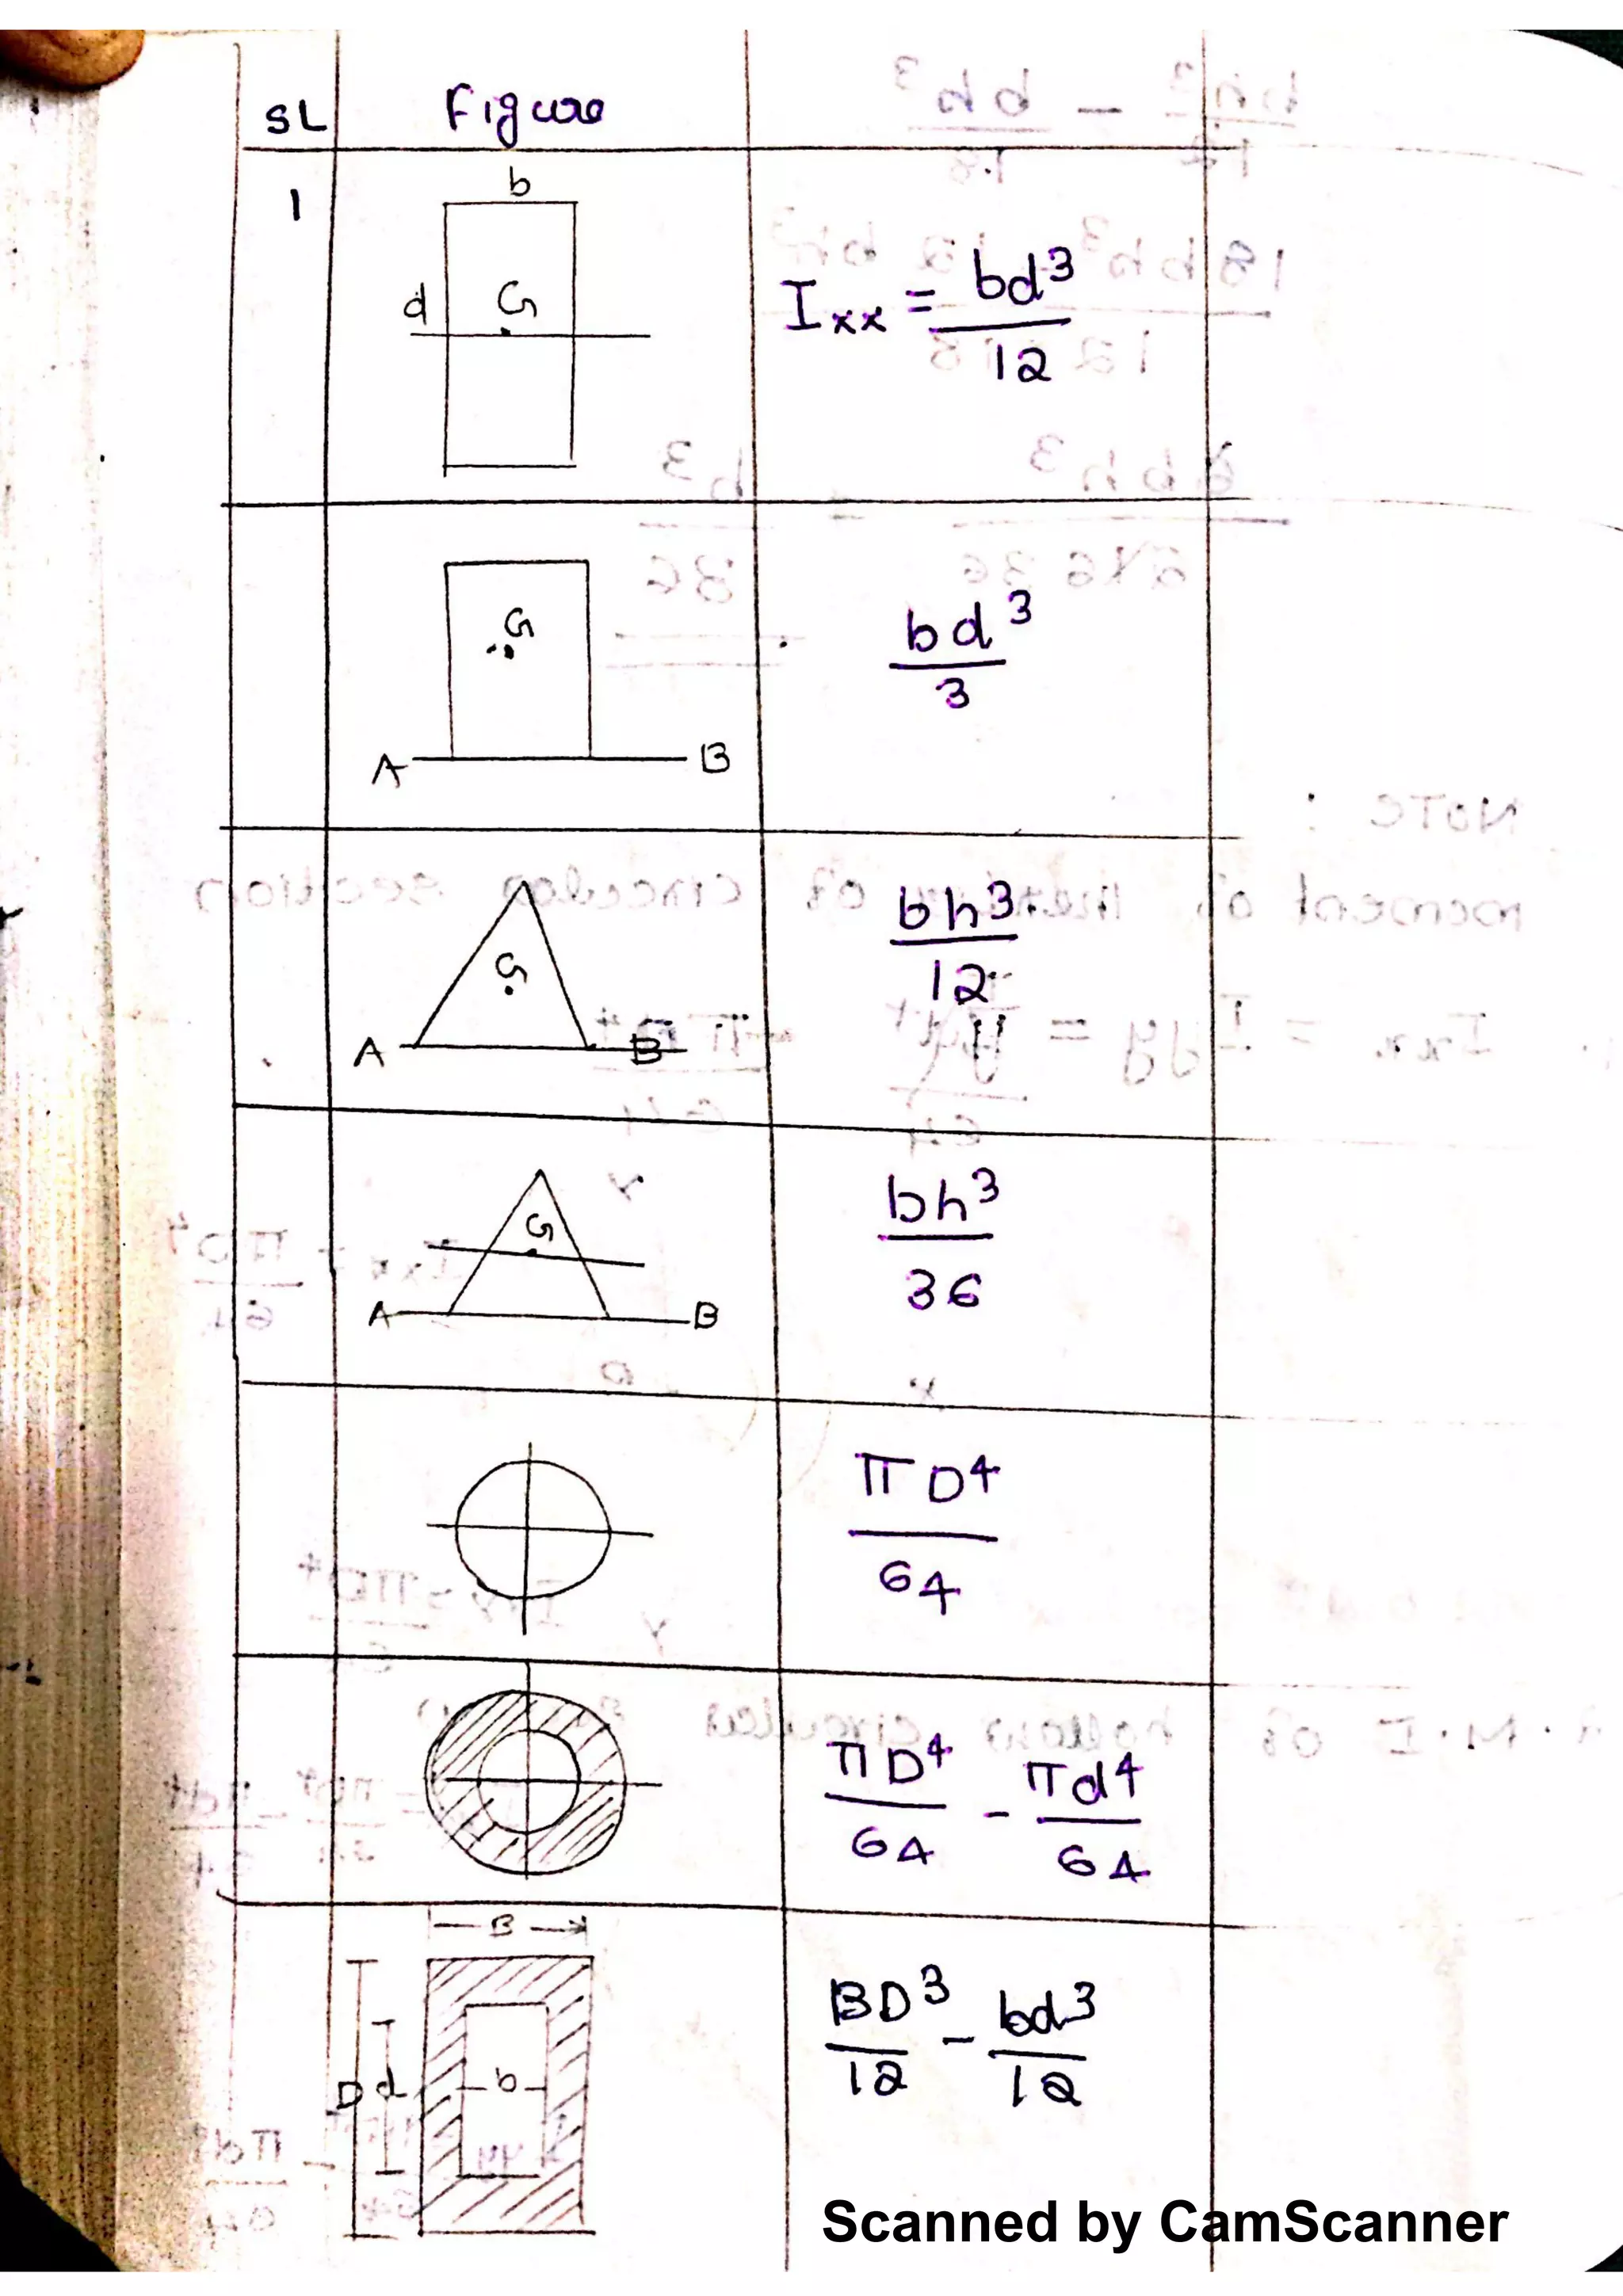 SL Figure
1
b
d G
Ixx = bd³/12
G
A B
bd³/3
G
A B
bh³/12
G
A B
bh³/36
πD⁴/64
πD⁴/64 - πd⁴/64
B
D d b
BD³/12 - bd³/12
Scanned by CamScanner